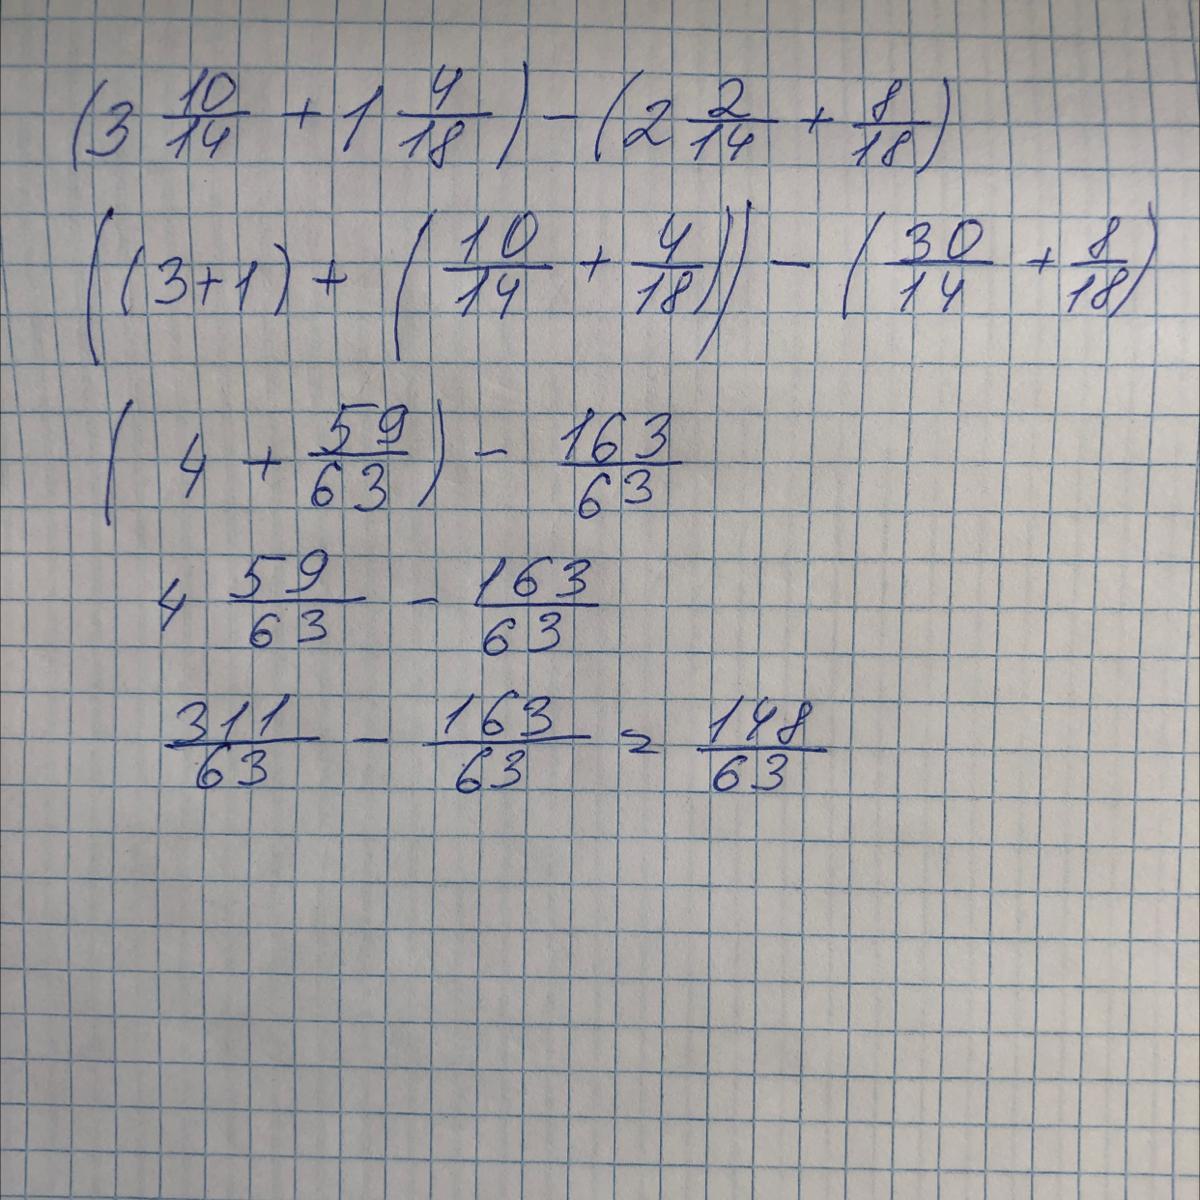 (3 10/14 + 1 4/18) - (2 2/14 + 8/18)
((3+1) + (10/14 + 4/18)) - (30/14 + 8/18)
(4 + 59/63) - 163/63
4 59/63 - 163/63
311/63 - 163/63 = 148/63